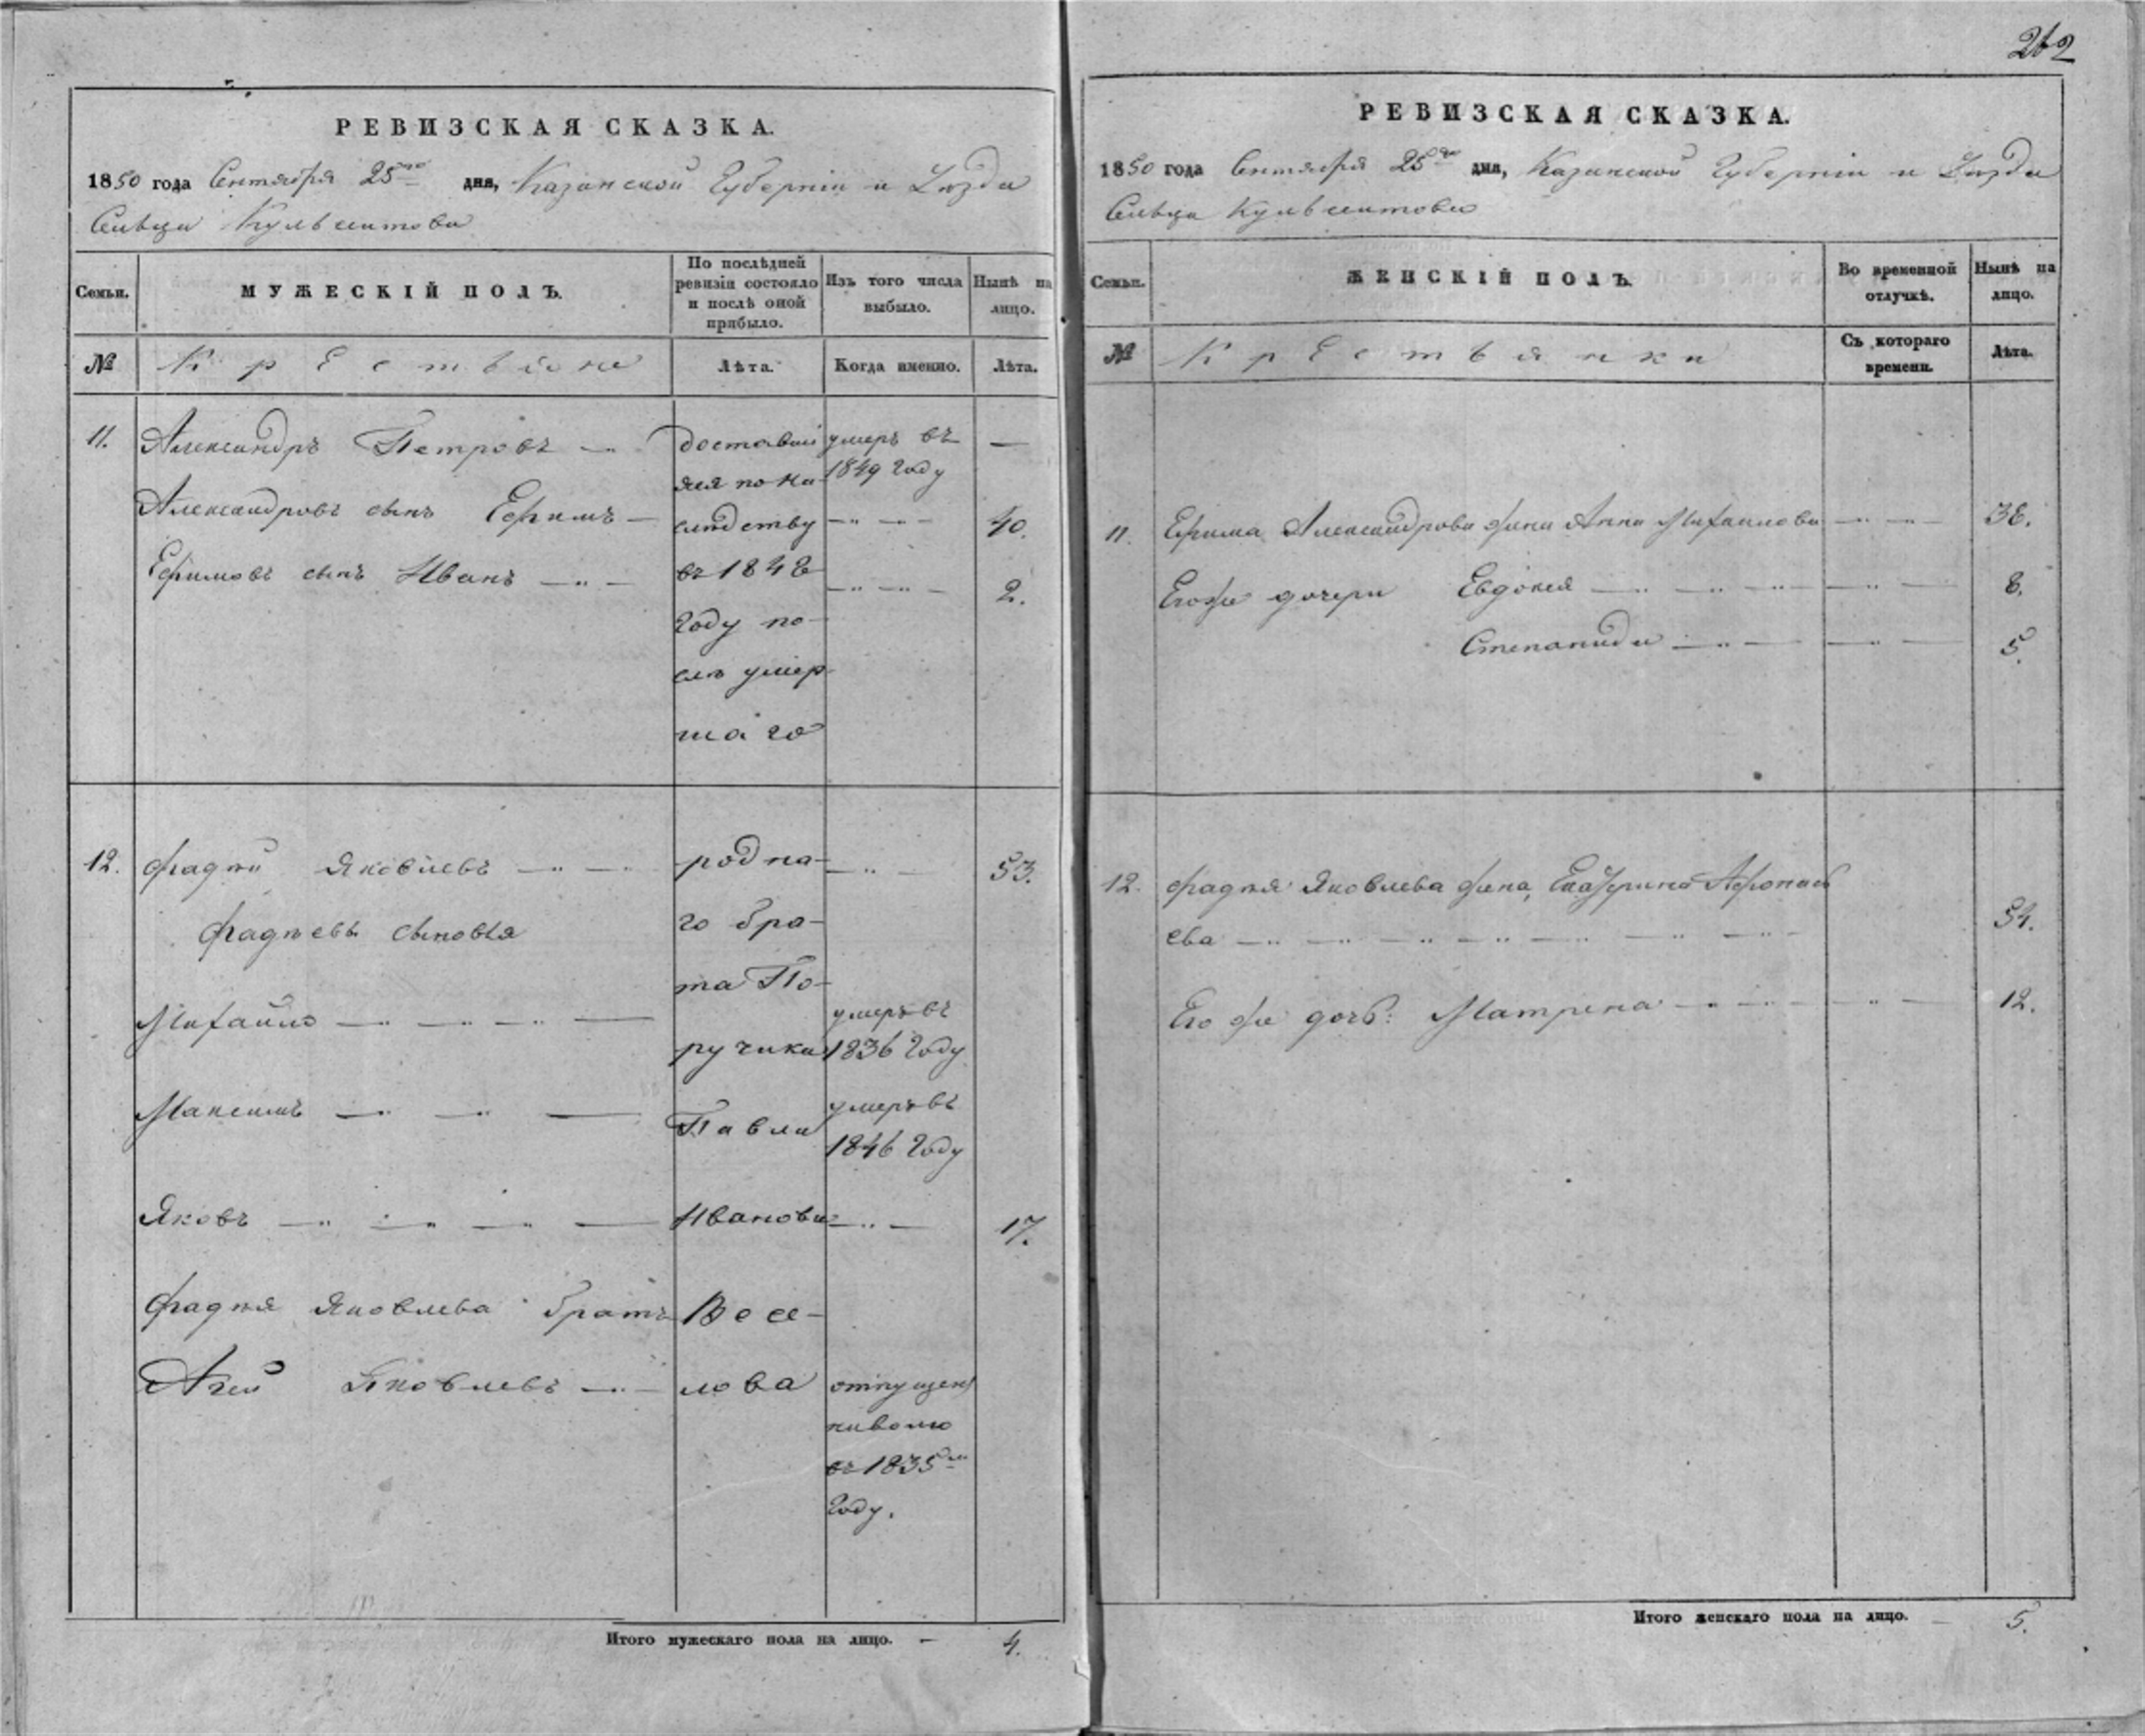 262
РЕВИЗСКАЯ СКАЗКА.
1850 года Сентября 25го дня, Казанской Губерніи и Уѣзда
Сельца Кульсеитова
Семьи.
МУЖЕСКІЙ ПОЛЪ.
По послѣдней ревизіи состояло и послѣ оной прибыло.
Изъ того числа выбыло.
Нынѣ на лицо.
№
Крестьяне
Лѣта.
Когда именно.
Лѣта.
11. Александръ Петровъ
умеръ въ 1849 году
—
Александровъ сынъ Ефимъ
40.
Ефимовъ сынъ Иванъ
2.
доставші
яся по на-
слѣдству
въ 1848
году по-
слѣ умер-
шаго
12. Фадѣй Яковлевъ
53.
Фадѣевы сыновья
Михайло
умеръ въ
1836 году
Максимъ
умеръ въ
1846 году
Яковъ
17.
Фадѣя Яковлева братъ
Агей Яковлевъ
отпущенъ
наволю
въ 1835м
году.
родна-
го бра-
та По-
ручика
Павла
Иванова
Весе-
лова
Итого мужескаго пола на лицо. — 4.
РЕВИЗСКАЯ СКАЗКА.
1850 года Сентября 25го дня, Казанской Губерніи и Уѣзда
Сельца Кульсеитова
Семьи.
ЖЕНСКІЙ ПОЛЪ.
Во временной отлучкѣ.
Нынѣ на лицо.
№
Крестьянки
Съ котораго времени.
Лѣта.
11. Ефима Александрова жена Анна Михаилова
38.
Егоже дочери Евдокея
8.
Степанида
5.
12. Фадѣя Яковлева жена, Екатерина Афонась
ева
54.
Его же дочь: Матрена
12.
Итого женскаго пола на лицо. — 5.